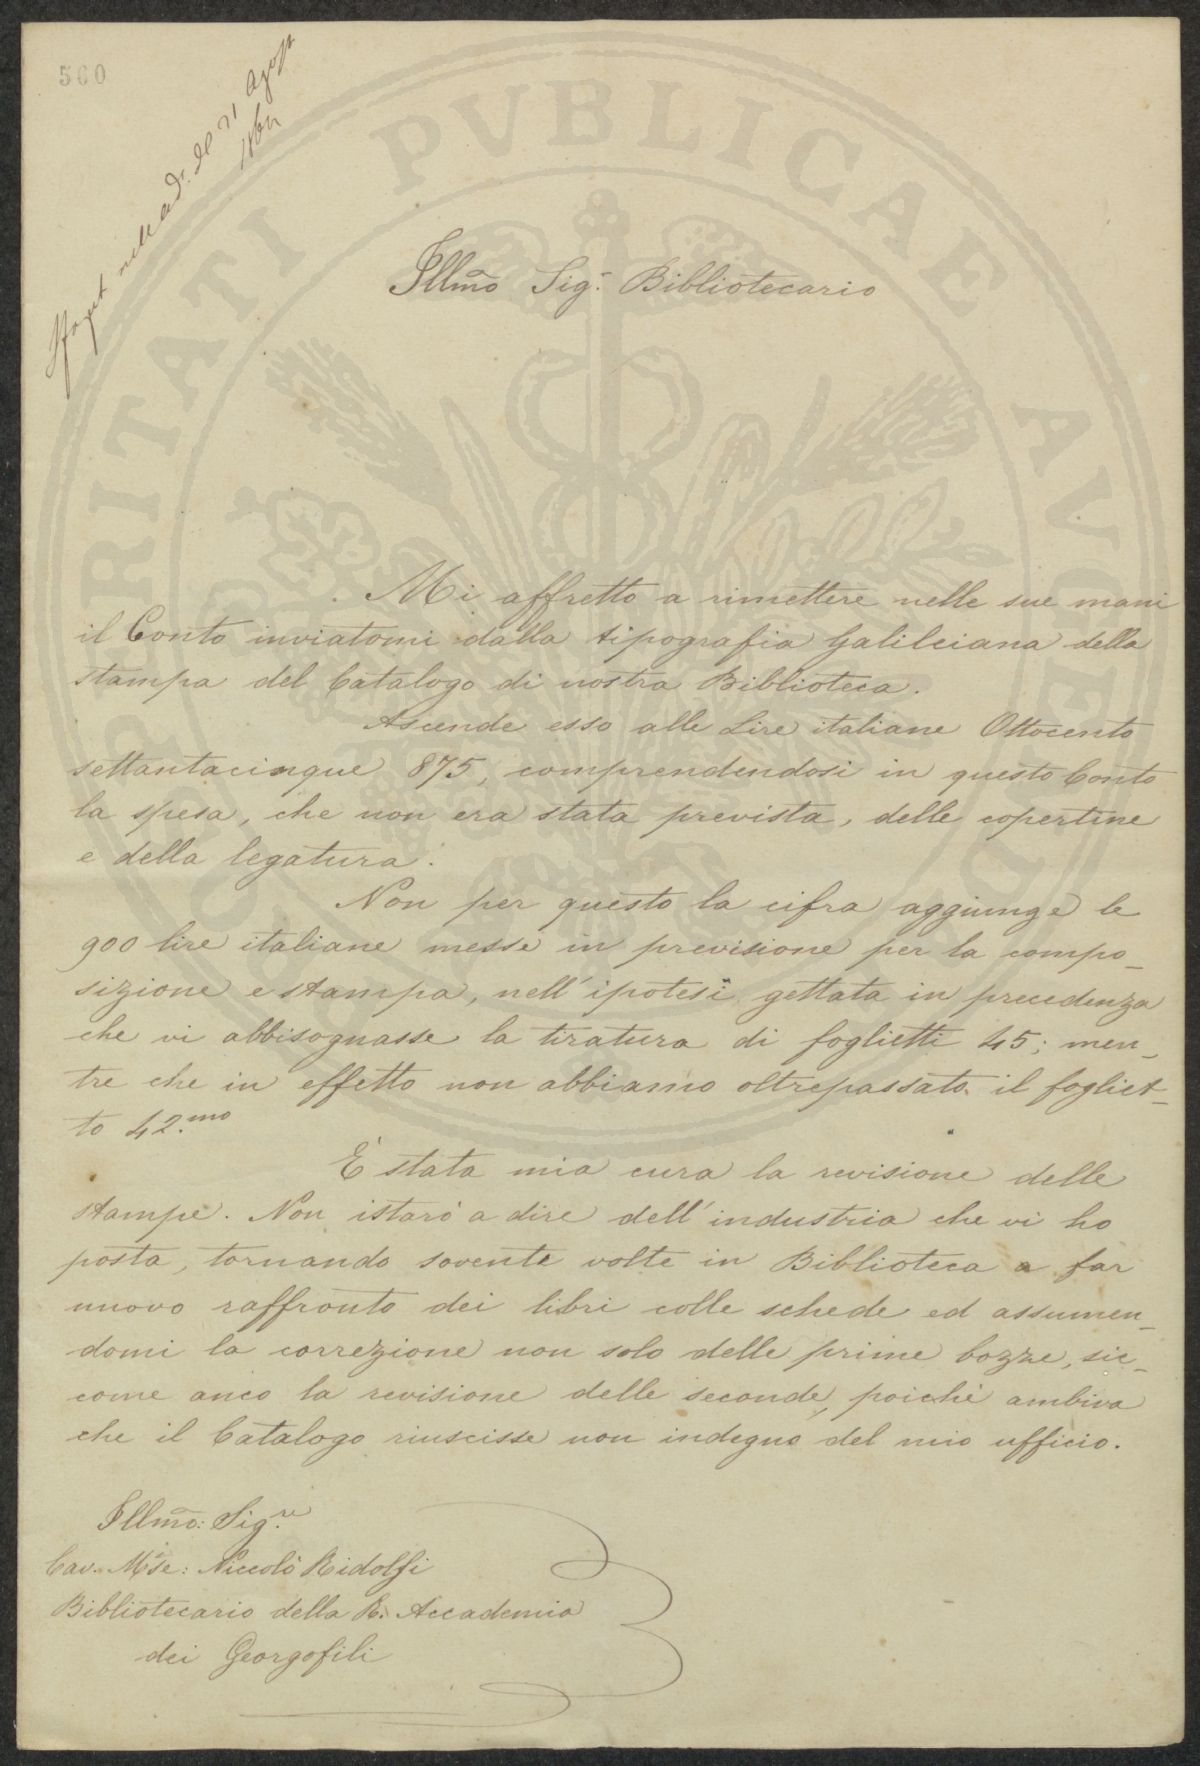 560
nell'ad. del 21 Agosto
Illmo Sig.r Bibliotecario
Mi affretto a rimettere nelle sue mani
il Conto inviatomi dalla tipografia Galileiana della
stampa del Catalogo di nostra Biblioteca.
Ascende esso alle Lire italiane Ottocento
settantacinque 875, comprendendosi in questo Conto
la spesa, che non era stata prevista, delle copertine
e della legatura.
Non per questo la cifra aggiunge le
900 lire italiane messe in previsione per la compo_
sizione e stampa, nell'ipotesi gettata in precedenza
che vi abbisognasse la tiratura di foglietti 45; men_
tre che in effetto non abbiamo oltrepassato il fogliet_
to 42.mo
È stata mia cura la revisione delle
stampe. Non istarò a dire dell'industria che vi ho
posta, tornando sovente volte in Biblioteca a far
nuovo raffronto dei libri colle schede ed assumen_
domi la correzione non solo delle prime bozze, sic_
come anco la revisione delle seconde, poichè ambiva
che il Catalogo riuscisse non indegno del mio ufficio.
Illmo: Sig.re
Cav. Mse: Niccolò Ridolfi
Bibliotecario della R. Accademia
dei Georgofili
PROSPERITATI PVBLICAE AVGENDAE